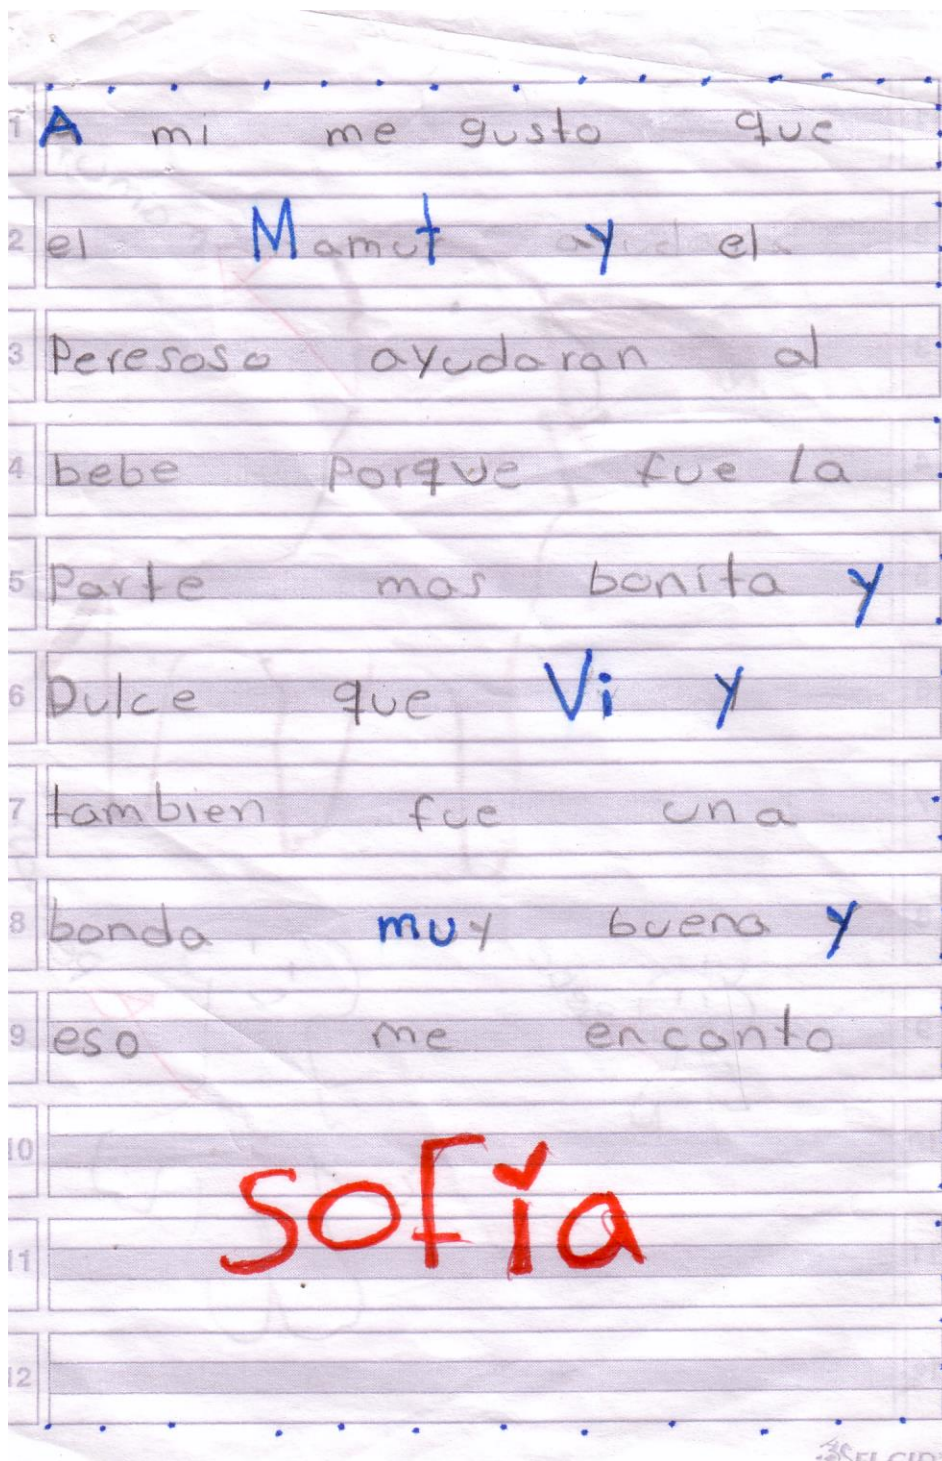 1 A mi me gusto que
2 el Mamut y el
3 Peresoso ayudaran al
4 bebe Porque fue la
5 Parte mas bonita y
6 Dulce que Vi y
7 tambien fue una
8 bonda muy buena y
9 eso me encanto
10
SOFia
11
12